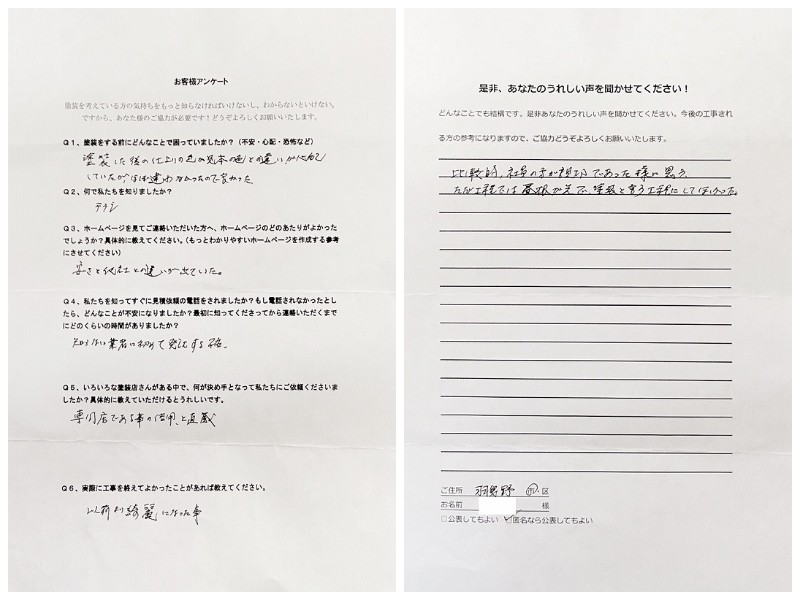 お客様アンケート
塗装を考えている方の気持ちをもっと知らなければいけないし、わからないといけない。
ですから、あなた様のご協力が必要です！どうぞよろしくお願いいたします。
Q１、塗装をする前にどんなことで困っていましたか？（不安・心配・恐怖など）
塗装した後の仕上りの色が見本の色との違いが心配
していたがほぼ違わなかったので良かった
Q２、何で私たちを知りましたか？
チラシ
Q３、ホームページを見てご連絡いただいた方へ、ホームページのどのあたりがよかった
でしょうか？具体的に教えてください。（もっとわかりやすいホームページを作成する参考
にさせてください）
安さと他社との違いが出ていた。
Q４、私たちを知ってすぐに見積依頼の電話をされましたか？もし電話されなかったとし
たら、どんなことが不安になりましたか？最初に知ってくださってから連絡いただくまで
にどのくらいの時間がありましたか？
知らない業者に初めて発注する不安。
Q５、いろいろな塗装店さんがある中で、何が決め手となって私たちにご依頼くださいま
したか？具体的に教えていただけるとうれしいです。
専門店である事の信用、と直感
Q６、実際に工事を終えてよかったことがあれば教えてください。
以前より綺麗になった事
是非、あなたのうれしい声を聞かせてください！
どんなことでも結構です。是非あなたのうれしい声を聞かせてください。今後の工事され
る方の参考になりますので、ご協力どうぞよろしくお願いいたします。
比較的、社員の方が親切であった様に思う、
ただ工程では屋根が先で、塗装と言う工程にしてほしかった。
ご住所 羽曳野 市・区
お名前 様
□公表してもよい ☑匿名なら公表してもよい